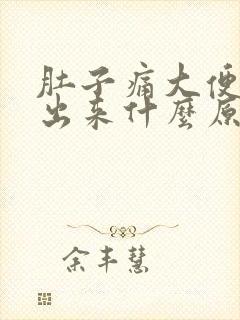 肚子痛大便
出来什麼原
余丰慧